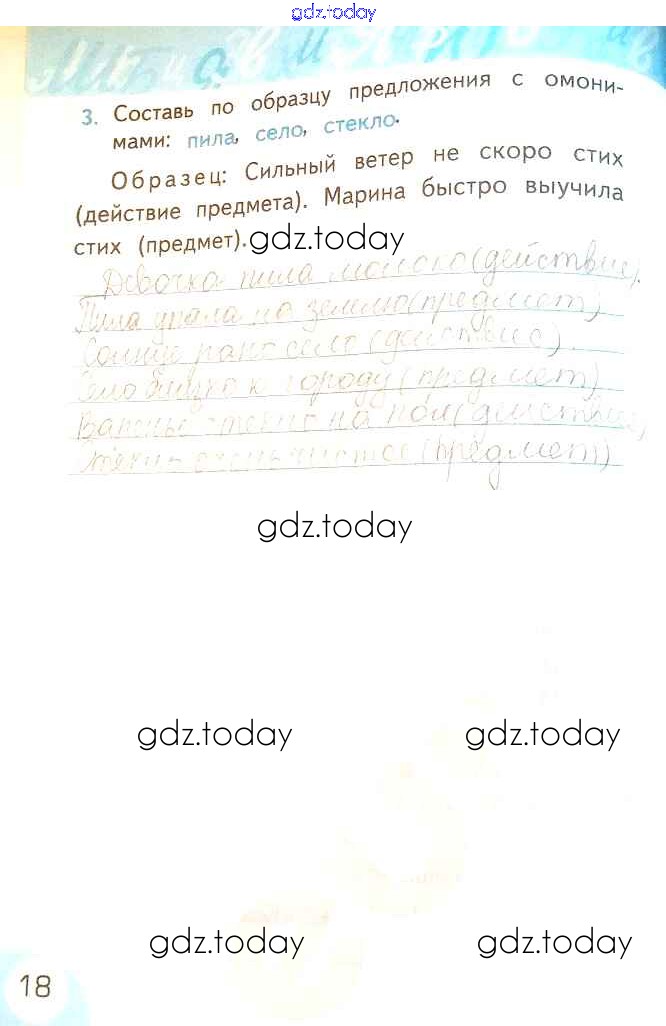 gdz.today
3. Составь по образцу предложения с омони-
мами: пила, село, стекло.
Образец: Сильный ветер не скоро стих
(действие предмета). Марина быстро выучила
стих (предмет).
gdz.today
Девочка пила молоко (действие).
Пила упала на землю (предмет)
Солнце рано село (действие)
Село близко к городу (предмет)
Варенье стекло на пол (действие)
Стекло очень чистое (предмет)
gdz.today
gdz.today gdz.today
gdz.today gdz.today
18